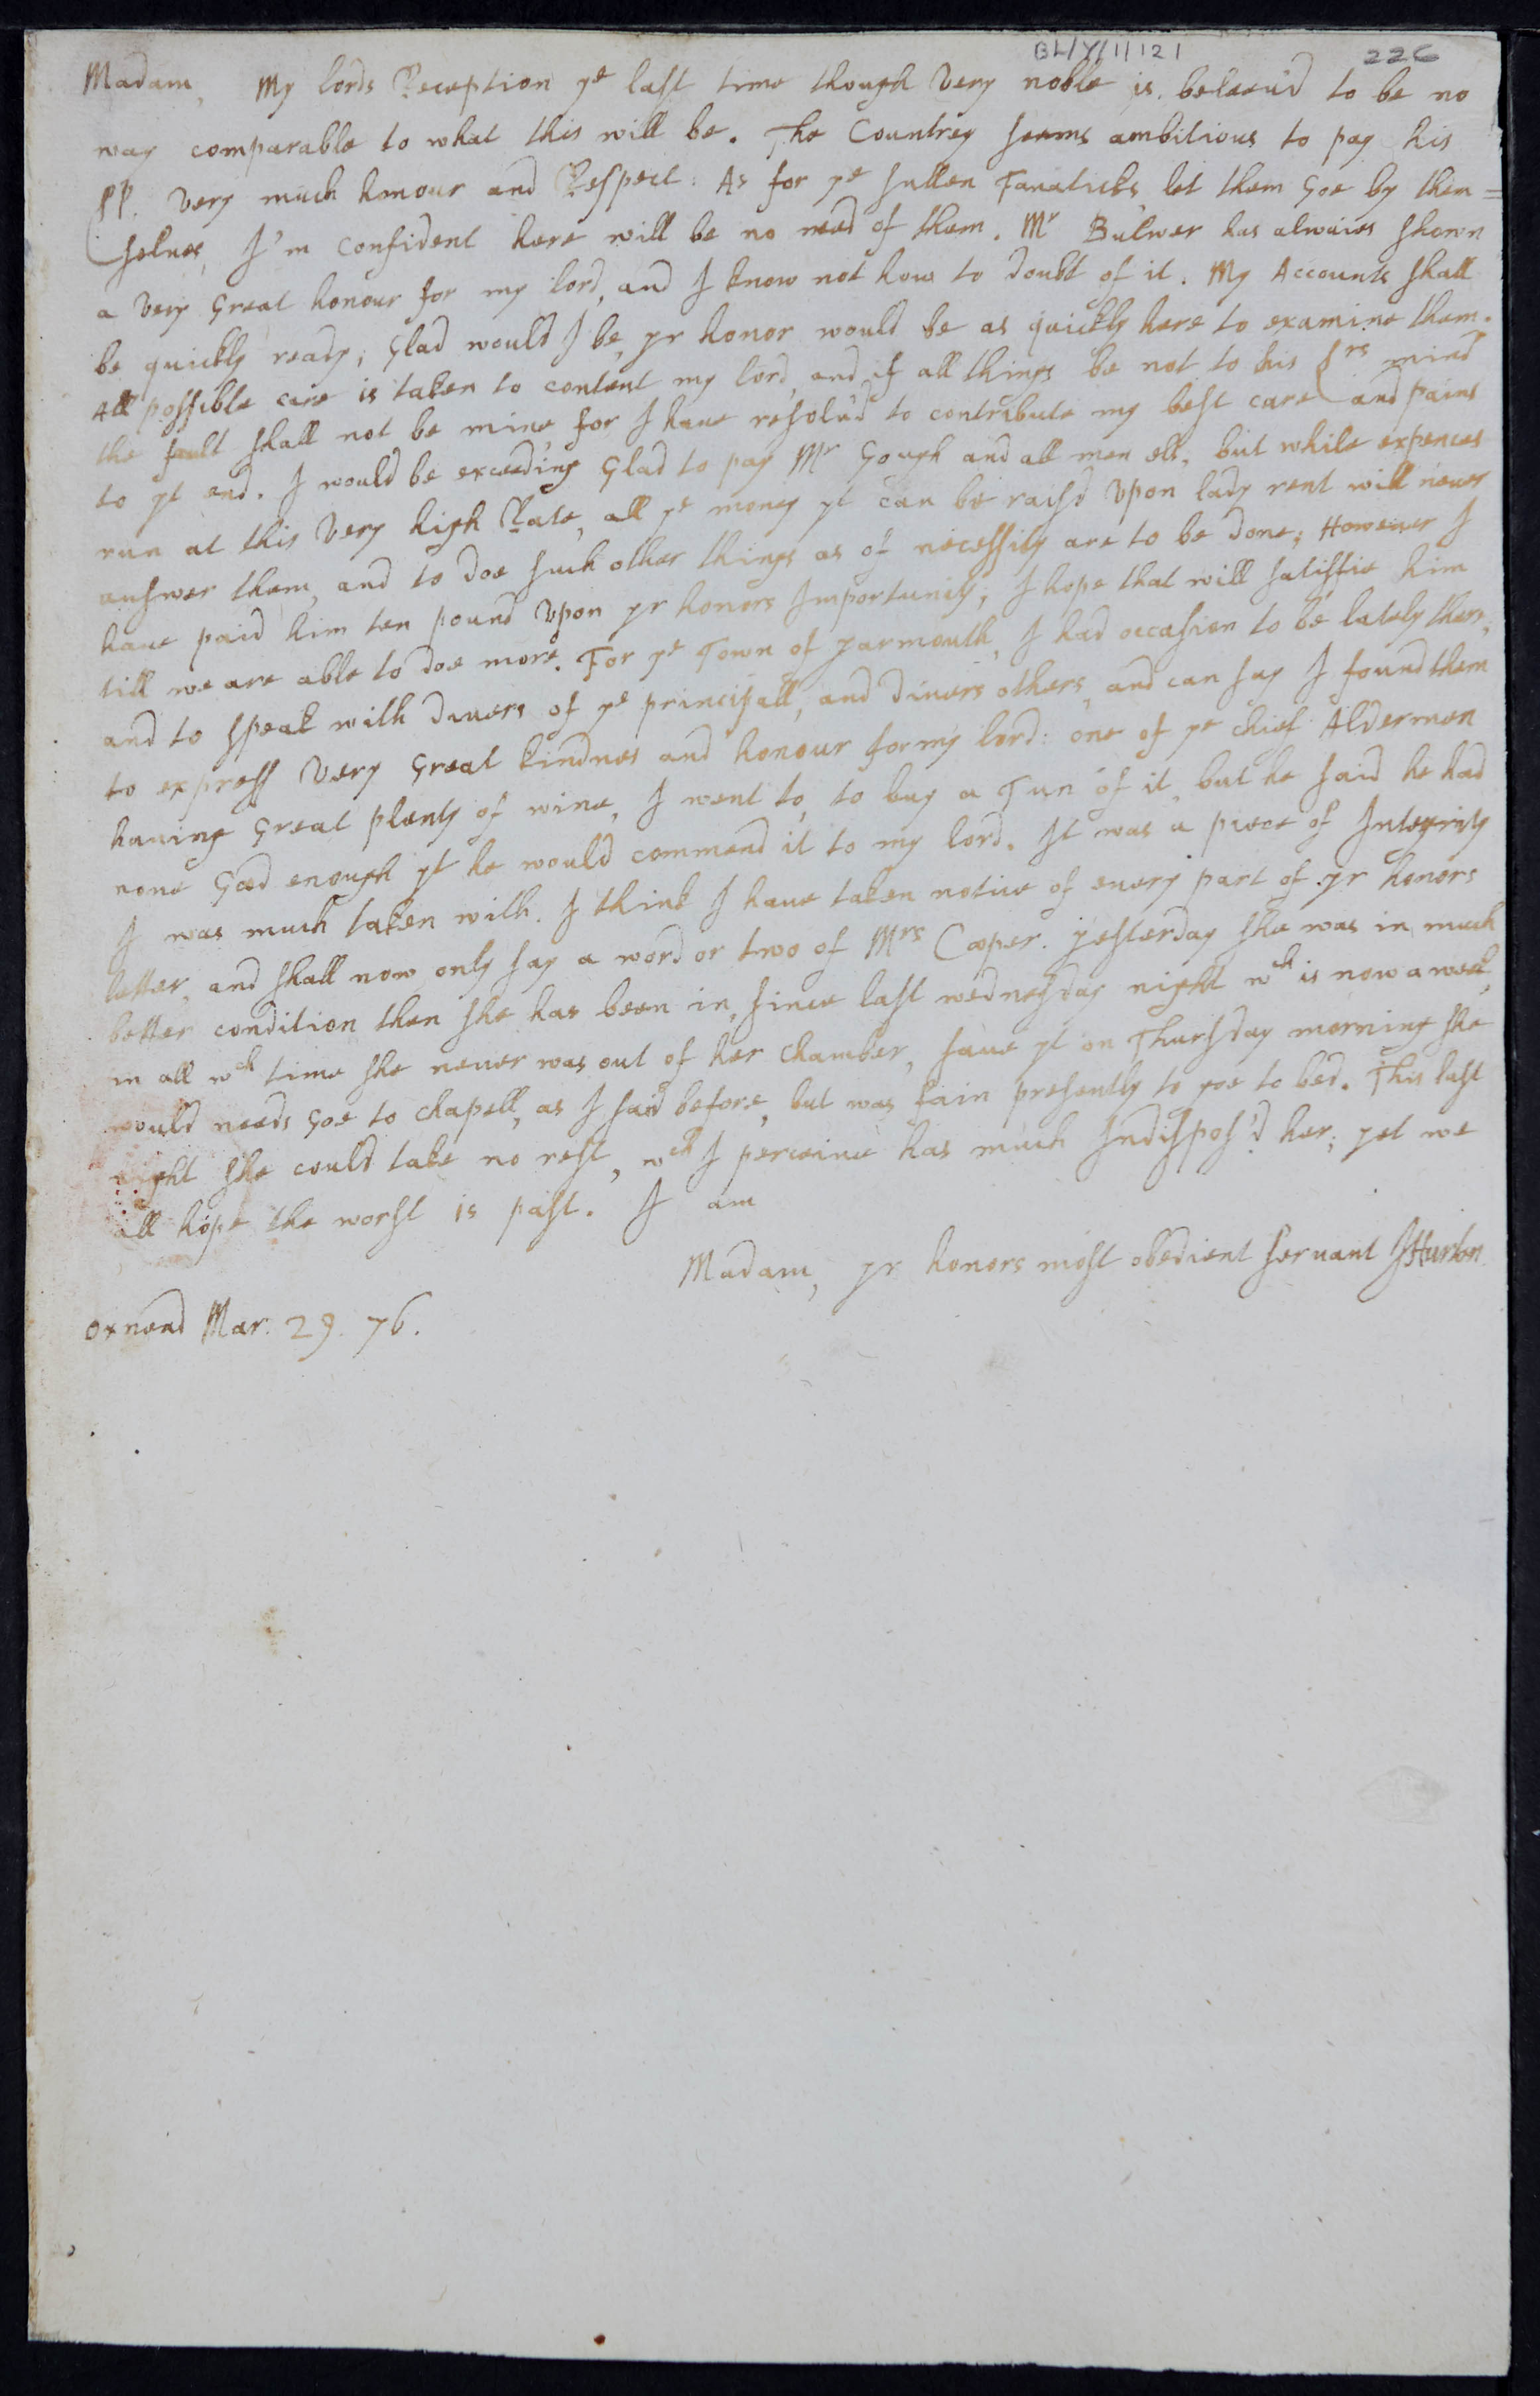 BL/Y/1/121
226
Madam, My lords Reception ye last time though Very noble is beleeu'd to be no
way comparable to what this will be. The Countrey seems ambitious to pay his
Very much honour and Respect: As for ye sullen Fanaticks, let them Goe by them=
selues, I'm confident here will be no need of them. Mr Bulwer has alwaies shown
a Very Great honour for my lord, and I know not how to doubt of it. My Accounts shall
be quickly ready; Glad would I be, yr honor would be as quickly here to examine them.
All possible care is taken to content my lord, and if all things be not to his mind
the fault shall not be mine, for I haue resolu'd to contribute my best care and pains
to yt end. I would be exceeding Glad to pay Mr Gough and all men els, but while expences
run at this Very high Rate, all ye money yt can be rais'd Vpon lady rent will neuer
answer them, and to doe such other things as of necessity are to be done; However I
haue paid him ten pound Vpon yr honors Importunity; I hope that will satisfie him
till we are able to doe more. For ye Town of yarmouth, I had occasion to be lately there,
and to speak with diuers of ye principall, and diuers others, and can say I found them
to express Very Great kindnes and honour for my lord: one of ye chief Aldermen
hauing Great plenty of wine, I went to, to buy a Tun of it, but he said he had
none Good enough yt he would commend it to my lord. It was a piece of Integrity
I was much taken with. I think I haue taken notice of euery part of yr honors
letter, and shall now only say a word or two of Mrs Cooper. yesterday she was in much
better condition then she has been in, since last wednesday night wch is now a week,
in all wch time she neuer was out of her chamber, saue yt on Thursday morning she
would needs Goe to chapell, as I said before, but was fain presently to goe to bed. This last
night she could take no rest, wch I perceiue has much Indispos'd her; yet we
all hope the worst is past. I am
Madam, yr honors most obedient seruant JHurton
oxnead Mar. 29. 76.